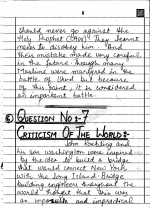 should never go against the
Holy Prophet (S.A.W)! They learnt
never to disobey him. And
their mistake made very careful
in the future though many
Muslims were martyred in the
battle of Uhud but because
of this point, it is considered
an important battle.
Question No 2-7
Criticism Of The World:-
John Roebling and
his son Washington were inspired
by the idea to build a bridge
that would connect New York
with the Long Island. Bridge
building engineers throughout the
world thought that this was
an impossible and impractical